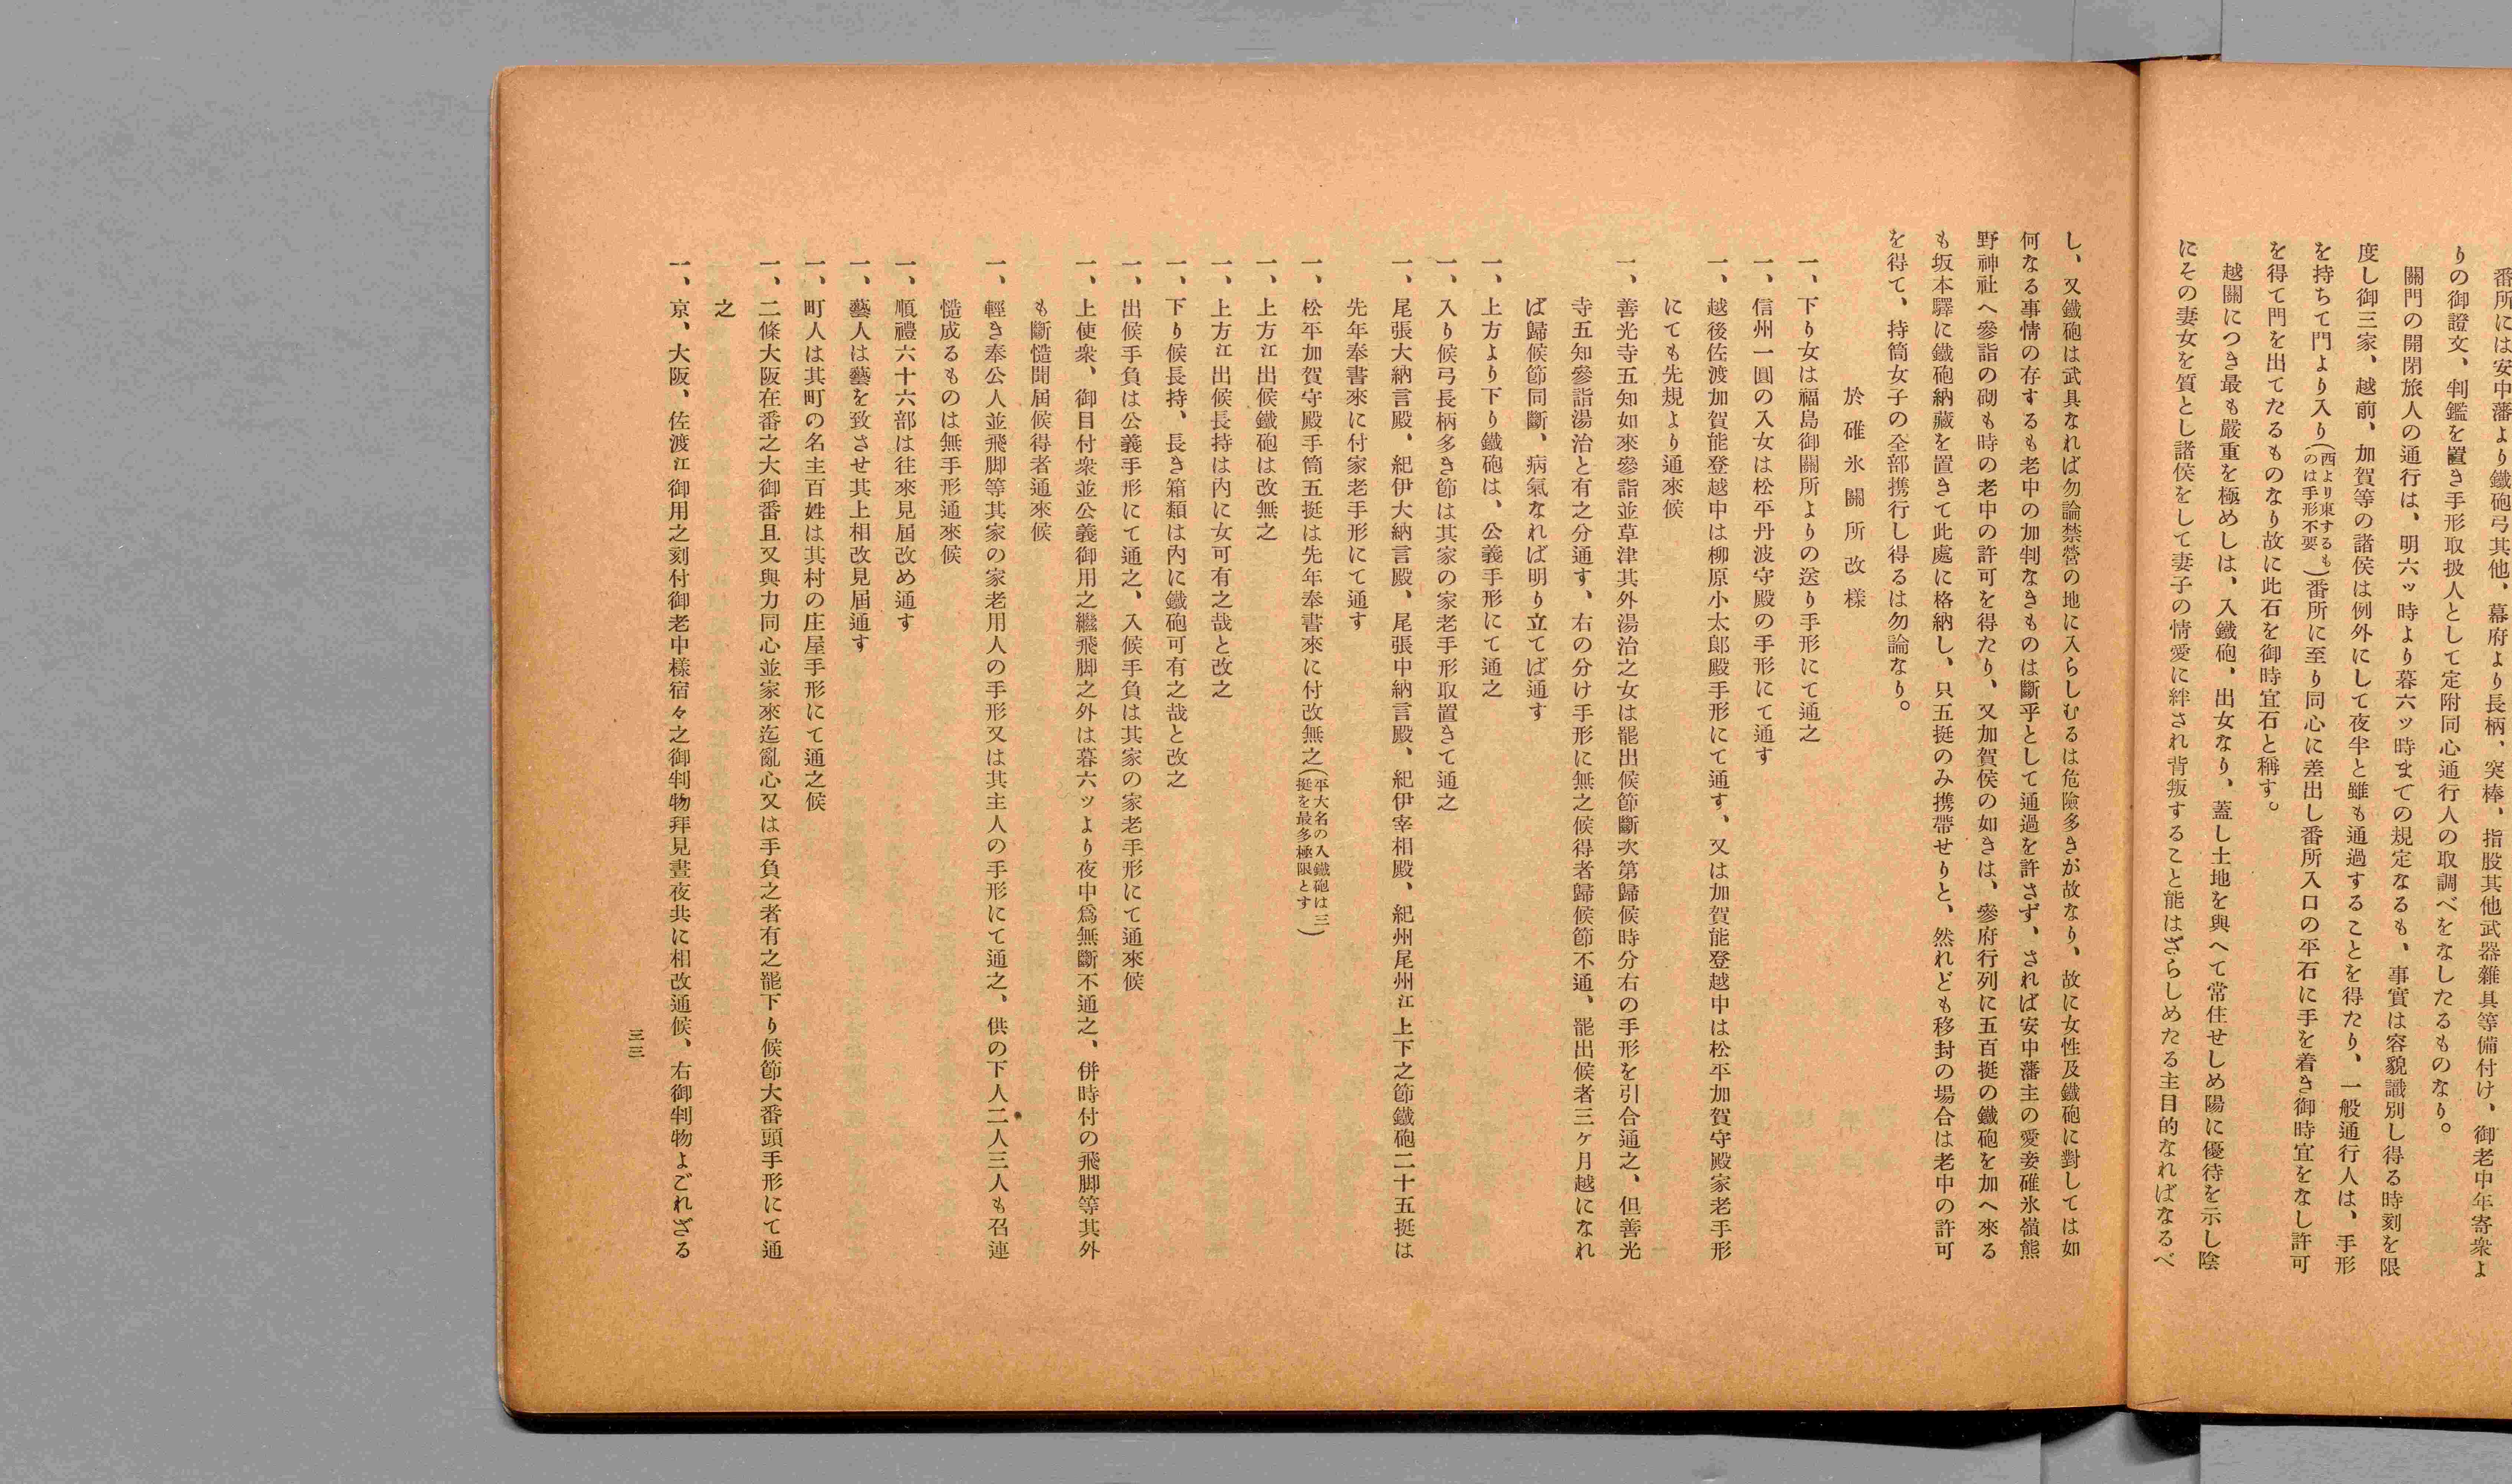 番所には安中藩より鐵砲弓其他、幕府より長柄、突棒、指股其他武器雜具等備付け、御老中年寄衆よ
りの御證文、判鑑を置き手形取扱人として定附同心通行人の取調べをなしたるものなり。
關門の開閉旅人の通行は、明六ッ時より暮六ッ時までの規定なるも、事實は容貌識別し得る時刻を限
度し御三家、越前、加賀等の諸侯は例外にして夜半と雖も通過することを得たり、一般通行人は、手形
を持ちて門より入り(西より東するものは手形不要)番所に至り同心に差出し番所入口の平石に手を着き御時宜をなし許可
を得て門を出てたるものなり故に此石を御時宜石と稱す。
越關につき最も嚴重を極めしは、入鐵砲、出女なり、蓋し土地を與へて常住せしめ陽に優待を示し陰
にその妻女を質とし諸侯をして妻子の情愛に絆され背叛すること能はざらしめたる主目的なればなるべ
し、又鐵砲は武具なれば勿論禁營の地に入らしむるは危險多きが故なり、故に女性及鐵砲に對しては如
何なる事情の存するも老中の加判なきものは斷乎として通過を許さず、されば安中藩主の愛妾碓氷嶺熊
野神社へ參詣の砌も時の老中の許可を得たり、又加賀侯の如きは、參府行列に五百挺の鐵砲を加へ來る
も坂本驛に鐵砲納藏を置きて此處に格納し、只五挺のみ携帶せりと、然れども移封の場合は老中の許可
を得て、持筒女子の全部携行し得るは勿論なり。
於碓氷關所改樣
一、下り女は福島御關所よりの送り手形にて通之
一、信州一圓の入女は松平丹波守殿の手形にて通す
一、越後佐渡加賀能登越中は柳原小太郎殿手形にて通す、又は加賀能登越中は松平加賀守殿家老手形
にても先規より通來候
一、善光寺五知如來參詣並草津其外湯治之女は罷出候節斷次第歸候時分右の手形を引合通之、但善光
寺五知參詣湯治と有之分通す、右の分け手形に無之候得者歸候節不通、罷出候者三ヶ月越になれ
ば歸候節同斷、病氣なれば明り立てば通す
一、上方より下り鐵砲は、公義手形にて通之
一、入り候弓長柄多き節は其家の家老手形取置きて通之
一、尾張大納言殿、紀伊大納言殿、尾張中納言殿、紀伊宰相殿、紀州尾州江上下之節鐵砲二十五挺は
先年奉書來に付家老手形にて通す
一、松平加賀守殿手筒五挺は先年奉書來に付改無之(平大名の入鐵砲は三挺を最多極限とす)
一、上方江出候鐵砲は改無之
一、上方江出候長持は內に女可有之哉と改之
一、下り候長持、長き箱類は內に鐵砲可有之哉と改之
一、出候手負は公義手形にて通之、入候手負は其家の家老手形にて通來候
一、上使衆、御目付衆並公義御用之繼飛脚之外は暮六ッより夜中爲無斷不通之、併時付の飛脚等其外
も斷慥聞屆候得者通來候
一、輕き奉公人並飛脚等其家の家老用人の手形又は其主人の手形にて通之、供の下人二人三人も召連
慥成るものは無手形通來候
一、順禮六十六部は往來見屆改め通す
一、藝人は藝を致させ其上相改見屆通す
一、町人は其町の名主百姓は其村の庄屋手形にて通之候
一、二條大阪在番之大御番且又與力同心並家來迄亂心又は手負之者有之罷下り候節大番頭手形にて通
之
一、京、大阪、佐渡江御用之刻付御老中樣宿々之御判物拜見晝夜共に相改通候、右御判物よごれざる
三三